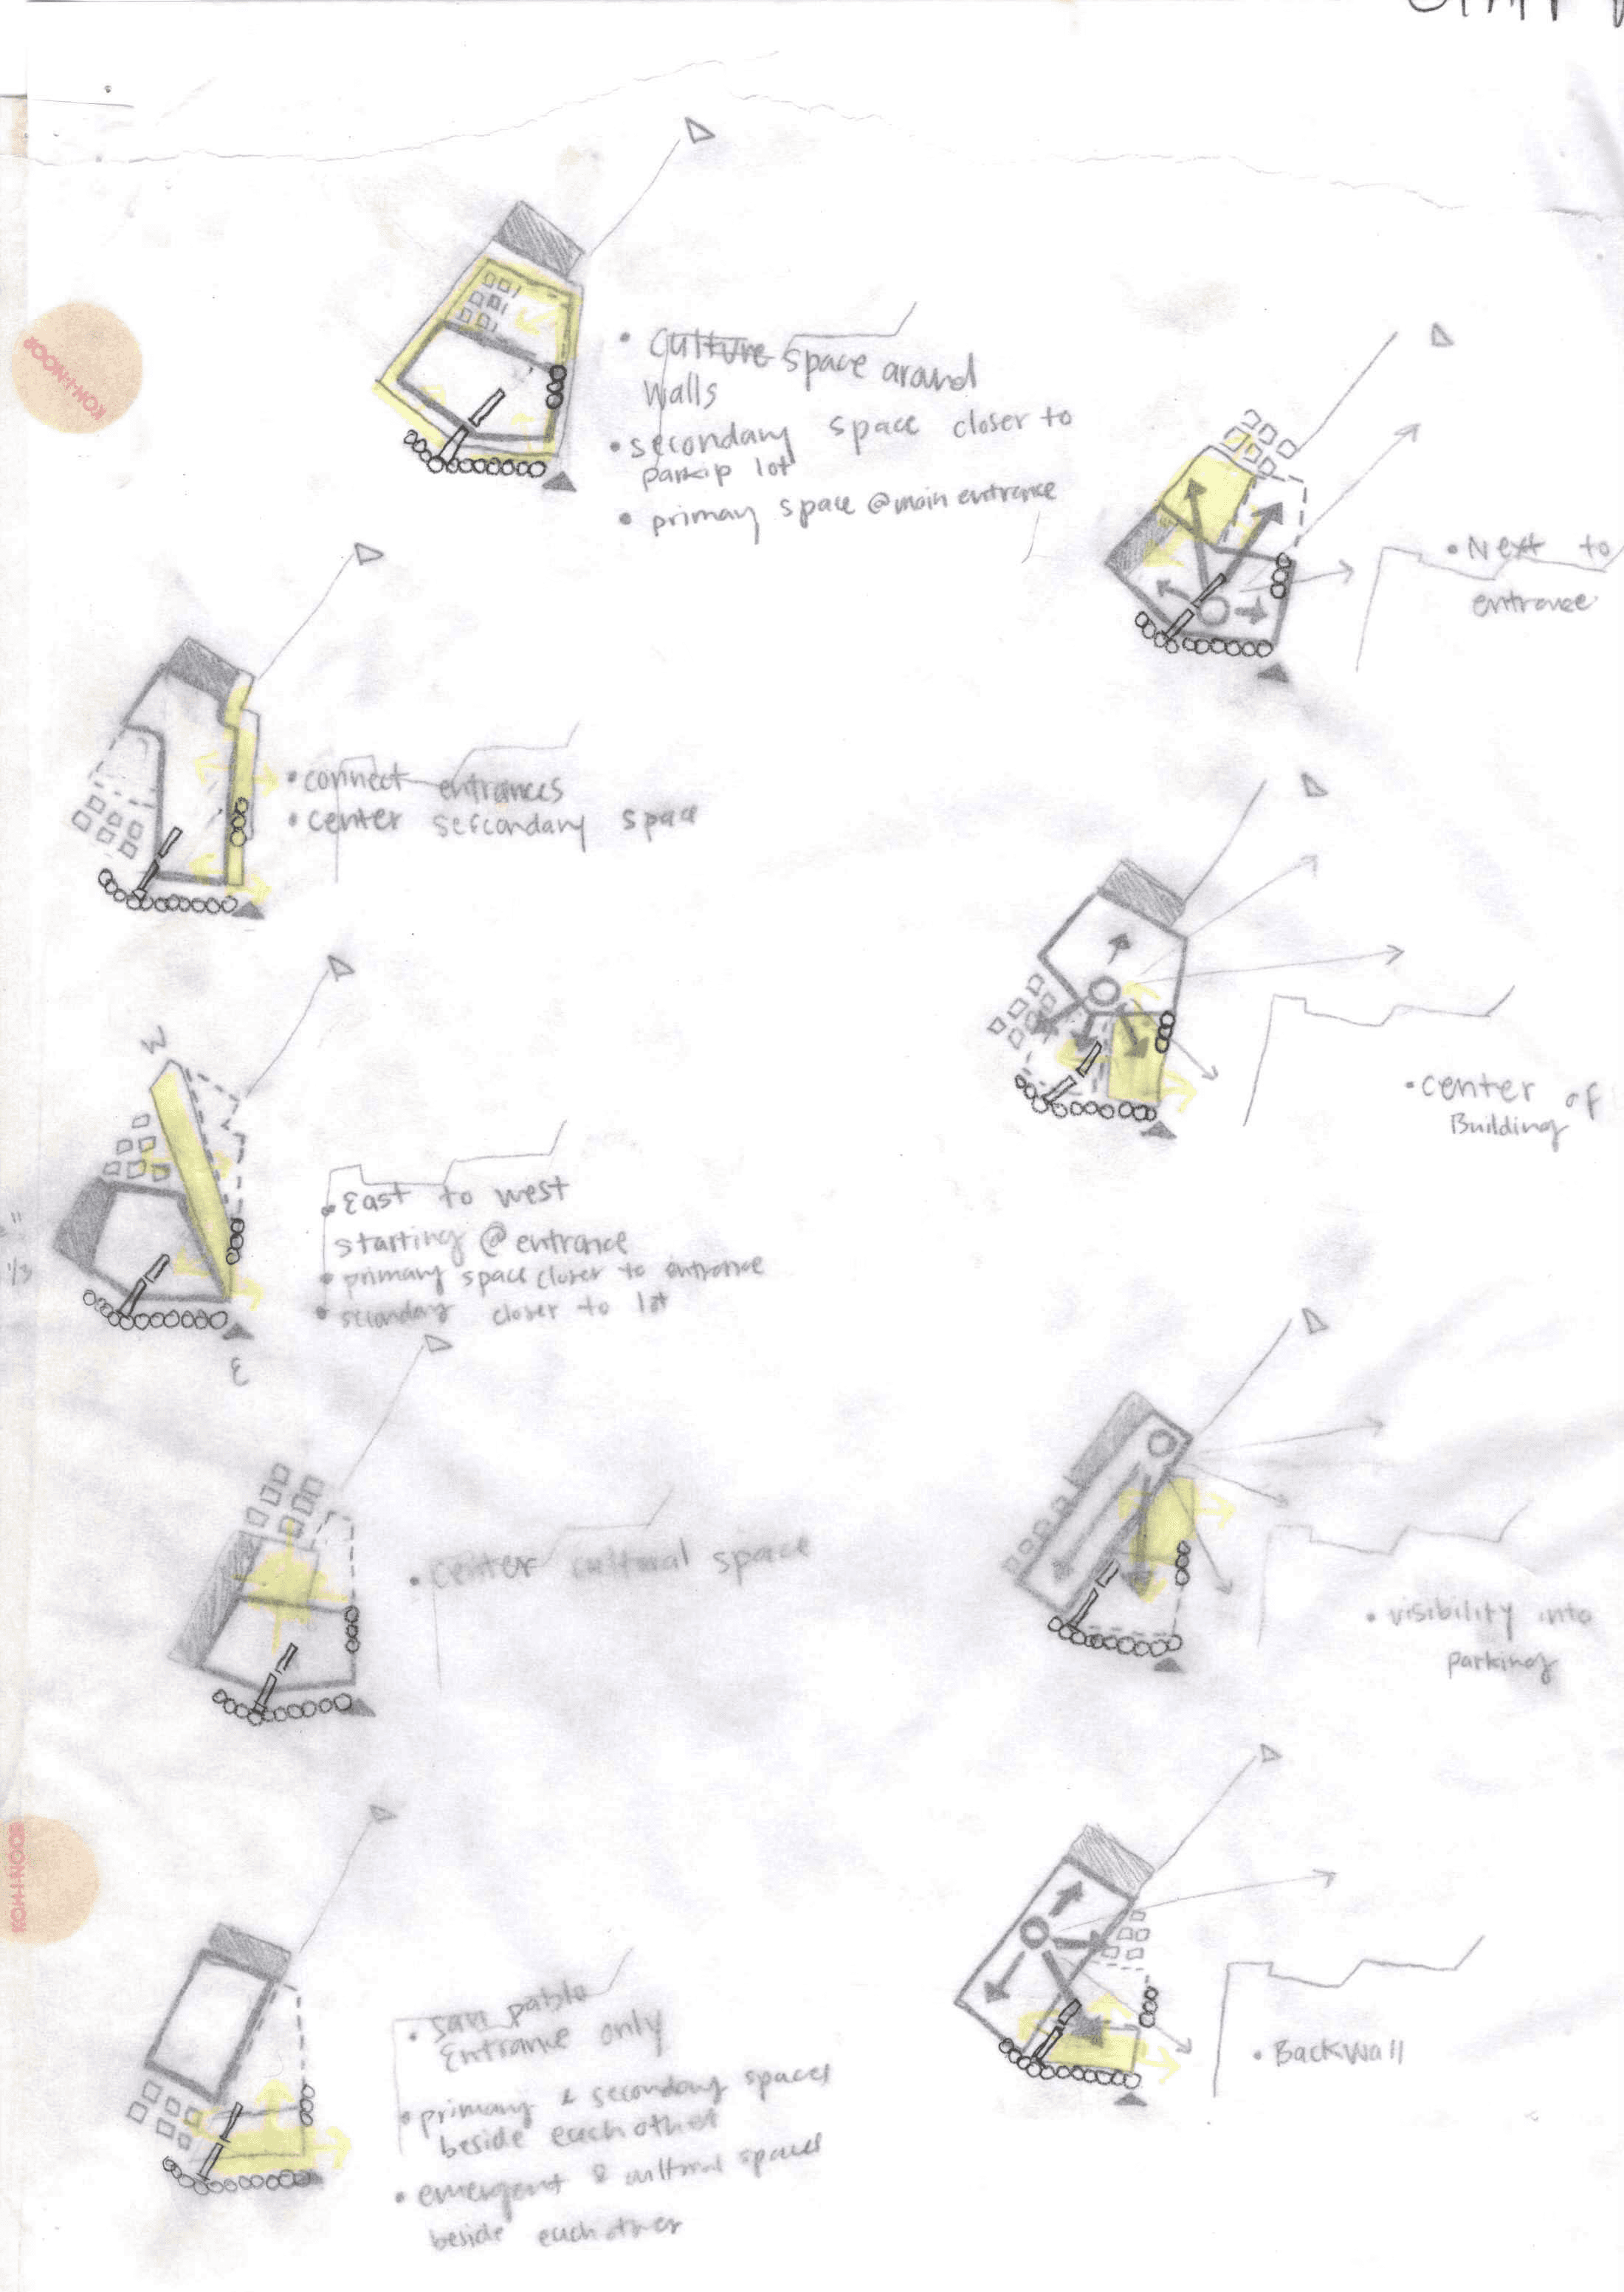 KOH-I-NOOR
• culture space around
walls
• secondary space closer to
parkip lot
• primary space @main entrance
• Next to
entrance
• connect entrances
• center seccondary space
W
• East to west
starting @ entrance
• primary space closer to entrance
• secondary closer to lot
E
• center of
Building
• center cultural space
• visibility into
parking
KOH-I-NOOR
• san pablo
Entrance only
• primary & secondary spaces
beside eachother
• emergent & cultural spaces
beside eachother
• Backwall